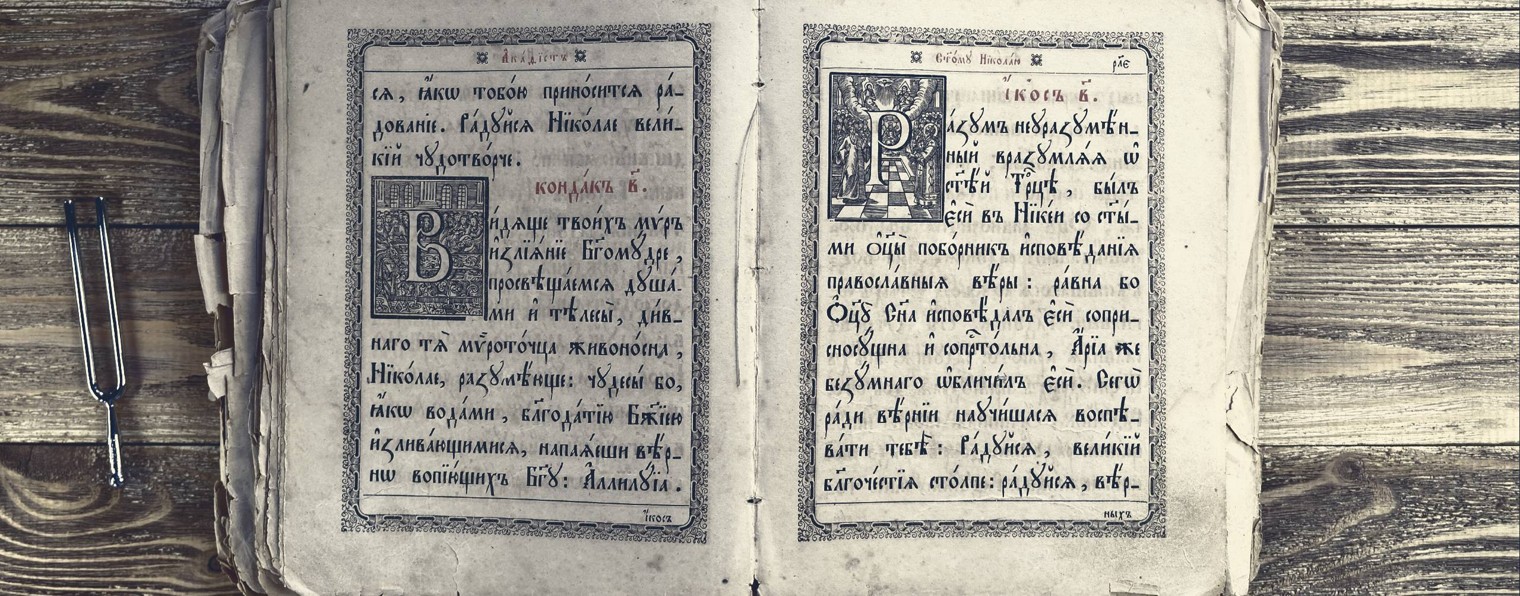 Акаѳістъ
сѧ, ꙗ҆́кѡ тобо́ю прино́ситсѧ ра́-
дованїе. Ра́дꙋйсѧ Нїко́лае вели́-
кїй чꙋдотво́рче.
конда́къ в҃.
Ви́дѧще твои́хъ мѵ́ръ
и҆злїѧ́нїе Бг҃омꙋ́дре,
просвѣща́емсѧ дꙋша́-
ми и҆ тѣлесы̀, ди́в-
наго тѧ̀ мѵ́рото́чца живоно́сна,
Нїко́лае, разꙋмѣ́юще: чꙋдесы́ бо,
ꙗ҆́кѡ вода́ми, блг҃ода́тїю Бж҃їею
и҆злива́ющимисѧ, напаѧ́еши вѣ́р-
нѡ вопїю́щихъ Бг҃ꙋ: А҆ллилꙋ́їа.
і҆́косъ
Ст҃о́мꙋ Нїкола́ю
рл҃є
і҆́косъ в҃.
Ра́зꙋмъ неꙋразꙋмѣ́н-
ный вразꙋмлѧ́ѧ ѡ҆
ст҃ѣ́й Трⷪ҇цѣ, бы́лъ
є҆сѝ въ Нїке́и со ст҃ы́-
ми ѻ҆ц҃ы̀ побо́рникъ и҆сповѣ́данїѧ
правосла́вныѧ вѣ́ры: ра́вна бо
Ѻ҆ц҃ꙋ̀ Сн҃а и҆сповѣ́далъ є҆сѝ сопри-
сносꙋ́щна и҆ сопрⷭ҇то́льна, А҆́рїа же
безꙋ́мнаго ѡ҆бличи́лъ є҆сѝ. Сегѡ̀
ра́ди вѣ́рнїи наꙋчи́шасѧ воспѣ-
ва́ти тебѣ̀: Ра́дꙋйсѧ, вели́кїй
блг҃оче́стїѧ сто́лпе: ра́дꙋйсѧ, вѣ́р-
ныхъ